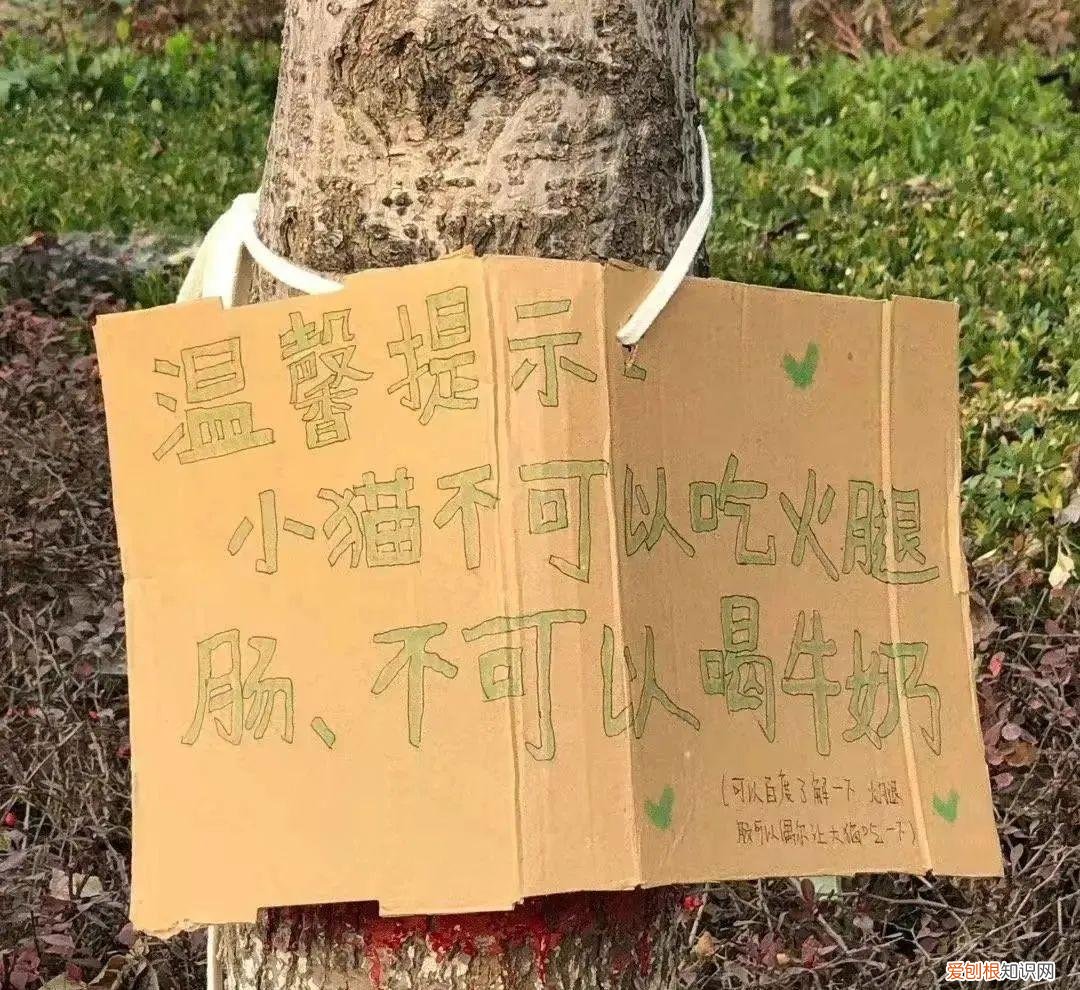 温馨提示:
小猫不可以吃火腿
肠、不可以喝牛奶
(可以百度了解一下 火腿
肠可以偶尔让大猫吃一下)
爱刨根知识网